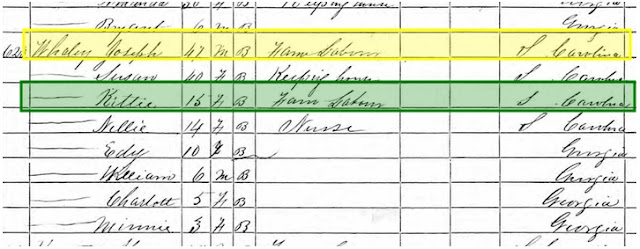 Keeping house
Georgia
Whaley Joseph 47 M B Farm Labour S Carolina
Susan 40 F B Keeping house S Carolina
Kittie 15 F B Farm Labour S Carolina
Nellie 14 F B Nurse S Carolina
Edy 10 F B Georgia
William 6 M B Georgia
Charlott 5 F B Georgia
Minnie 3 F B Georgia